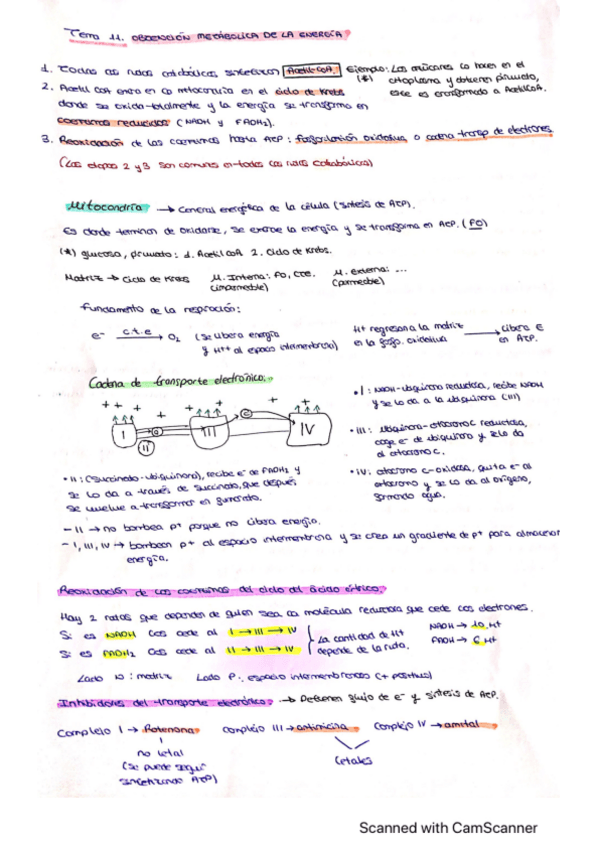 Tema 11. OBTENCIÓN METABÓLICA DE LA ENERGÍA
1. Todas las rutas catabólicas sintetizan Acetil-CoA. Ejemplo: Los azúcares lo hacen en el
(*) citoplasma y obtienen piruvato,
2. Acetil CoA entra en la mitocondria en el ciclo de Krebs este es transformado a AcetilCoA.
donde se oxida totalmente y la energía se transforma en
coenzimas reducidas (NADH y FADH2).
3. Reoxidación de las coenzimas hasta ATP: fosforilación oxidativa o cadena transp de electrones
(Las etapas 2 y 3 son comunes en todas las rutas catabólicas)
Mitocondria → Central energética de la célula (síntesis de ATP).
Es donde terminan de oxidarse, se extrae la energía y se transforma en ATP. (FO)
(*) glucosa, piruvato: 1. Acetil CoA 2. Ciclo de Krebs.
Matriz → Ciclo de Krebs M. Interna: FO, CTE. M. externa: ...
(impermeable) (permeable)
Fundamento de la respiración:
e- c.t.e → O2 (se libera energía
y H+ al espacio intermembrana)
H+ regresan a la matriz → libera E
en la fosfo. oxidativa en ATP.
Cadena de transporte electrónico:
+ + + + + + +
I Q III C IV
II
• I: NADH-ubiquinona reductasa, recibe NADH
y se lo da a la ubiquinona (III)
• III: ubiquinona-citocromo C reductasa,
coge e- de ubiquinona y se lo da
al citocromo C.
• II: (Succinato-ubiquinona), recibe e- de FADH2 y
se lo da a través de succinato, que después
se vuelve a transformar en fumarato.
• IV: citocromo C-oxidasa, quita e- al
citocromo y se lo da al oxígeno,
formando agua.
- II → no bombea p+ porque no libera energía.
- I, III, IV → bombean p+ al espacio intermembrana y se crea un gradiente de p+ para almacenar
energía.
Reoxidación de las coenzimas del ciclo del ácido cítrico.
Hay 2 rutas que dependen de quien sea la molécula reductora que cede los electrones.
Si es NADH los cede al I → III → IV
Si es FADH2 los cede al II → III → IV
La cantidad de H+
depende de la ruta.
NADH → 10 H+
FADH → 6 H+
Lado N: matriz Lado P: espacio intermembranoso (+ positivo)
Inhibidores del transporte electrónico: → Detienen flujo de e- y síntesis de ATP.
Complejo I → Rotenona Complejo III → antimicina Complejo IV → amital
no letal
(se puede seguir
sintetizando ATP)
Letales
Scanned with CamScanner